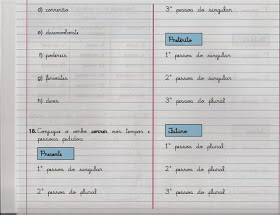 d) correrão
e) desenvolveste
f) poderei
g) ferveste
h) deves
18. Conjugue o verbo correr nos tempos e
pessoas pedidos:
Presente
1ª pessoa do singular
2ª pessoa do plural
3ª pessoa do singular
Pretérito
1ª pessoa do singular
2ª pessoa do singular
3ª pessoa do plural
Futuro
1ª pessoa do plural
2ª pessoa do plural
3ª pessoa do plural